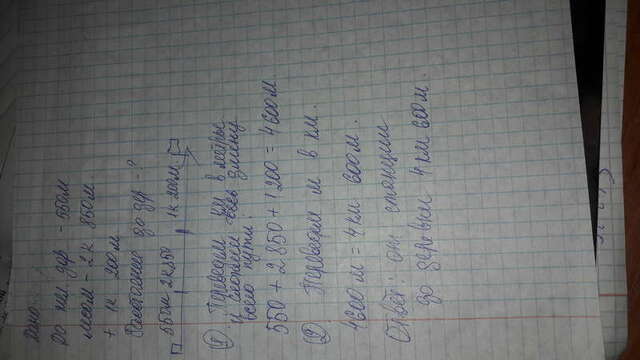 Дано
До жел. дор - 550 м
лесом - 2 к 850 м.
+ 1 к 200 м
Расстояние до дер - ?
550 м 2 к 850 1 к 200 м.
① Переведем км в метры
и сложим всю длину
всего пути.
550 + 2 850 + 1 200 = 4600 м.
② Переведем м в км.
4600 м = 4 км 600 м.
Ответ: от станции
до деревни 4 км 600 м.